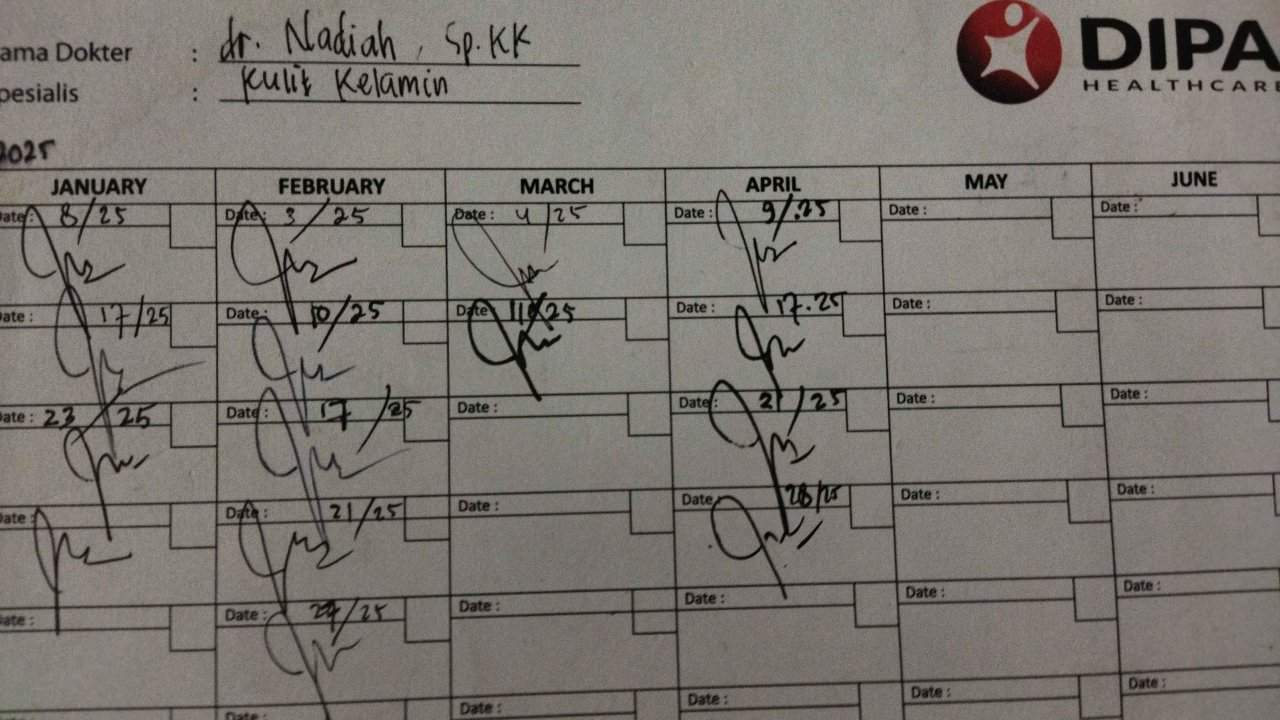 ama Dokter : dr. Nadiah, Sp.KK
pesialis : Kulit Kelamin
DIPA
HEALTHCARE
2025
JANUARY FEBRUARY MARCH APRIL MAY JUNE
Date: 8/25 Date: 3/25 Date: 4/25 Date: 9/.25 Date: Date:
ate: 17/25 Date: 10/25 Date 11/25 Date: 17.25 Date: Date:
Date: 23/25 Date: 17/25 Date: Date: 21/25 Date: Date:
Date: Date: 21/25 Date: Date 28/25 Date: Date:
ate: Date: 27/25 Date: Date: Date: Date:
Date: Date: Date: Date: Date: